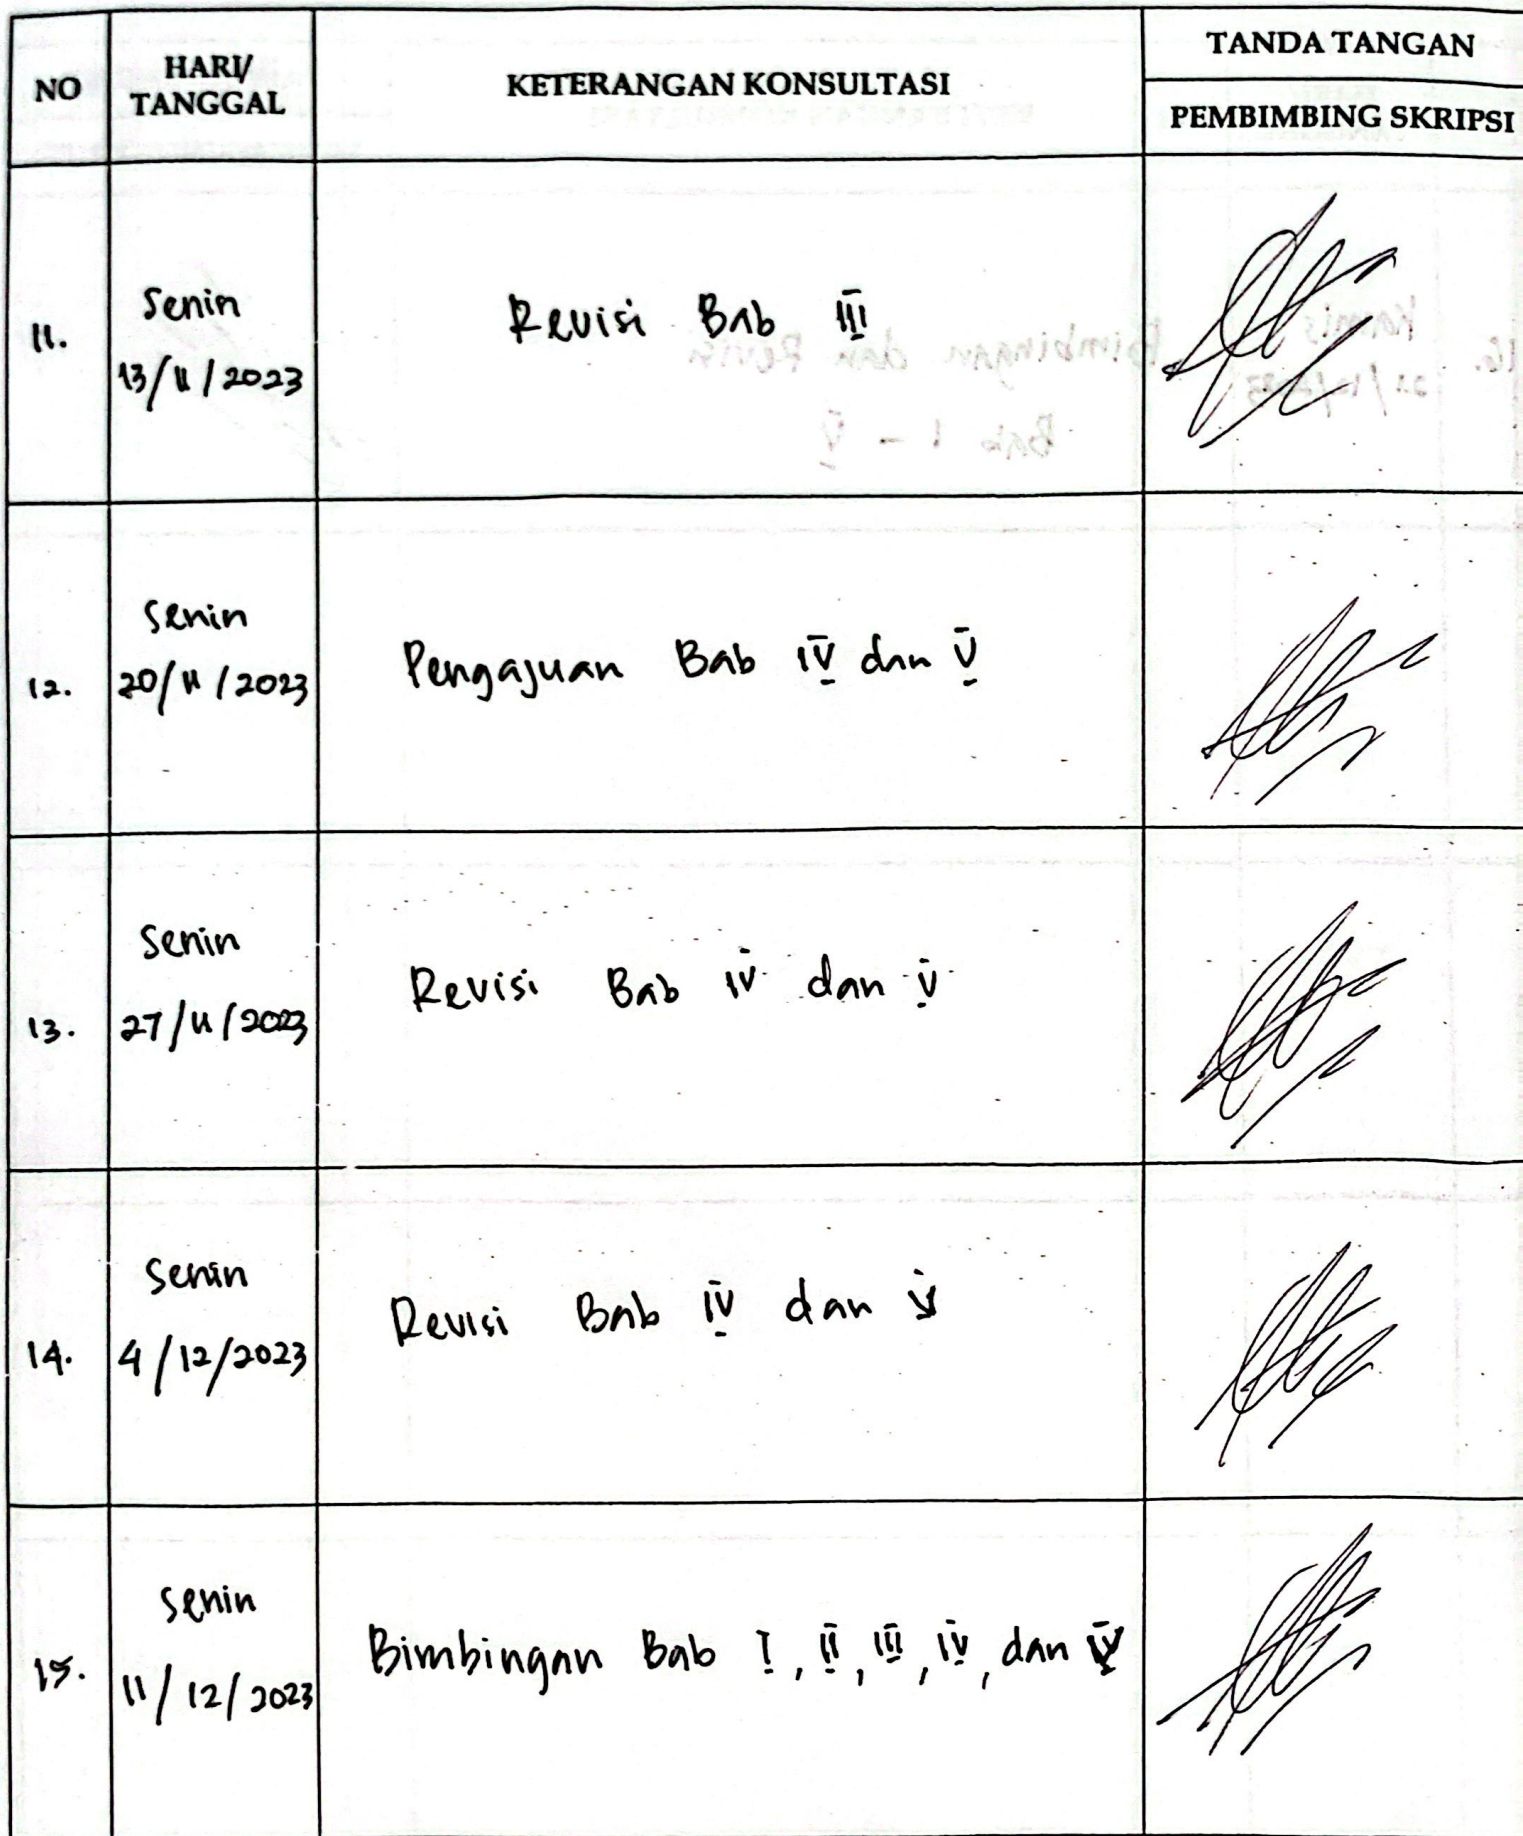 NO
HARI/
TANGGAL
KETERANGAN KONSULTASI
TANDA TANGAN
PEMBIMBING SKRIPSI
11.
Senin
13/11/2023
Revisi Bab III
12.
Senin
20/11/2023
Pengajuan Bab IV dan V
13.
Senin
27/11/2023
Revisi Bab IV dan V
14.
Senin
4/12/2023
Revisi Bab IV dan V
15.
Senin
11/12/2023
Bimbingan Bab I, II, III, IV, dan V
16.
Kamis
Bimbingan dan Revisi
Bab I - V